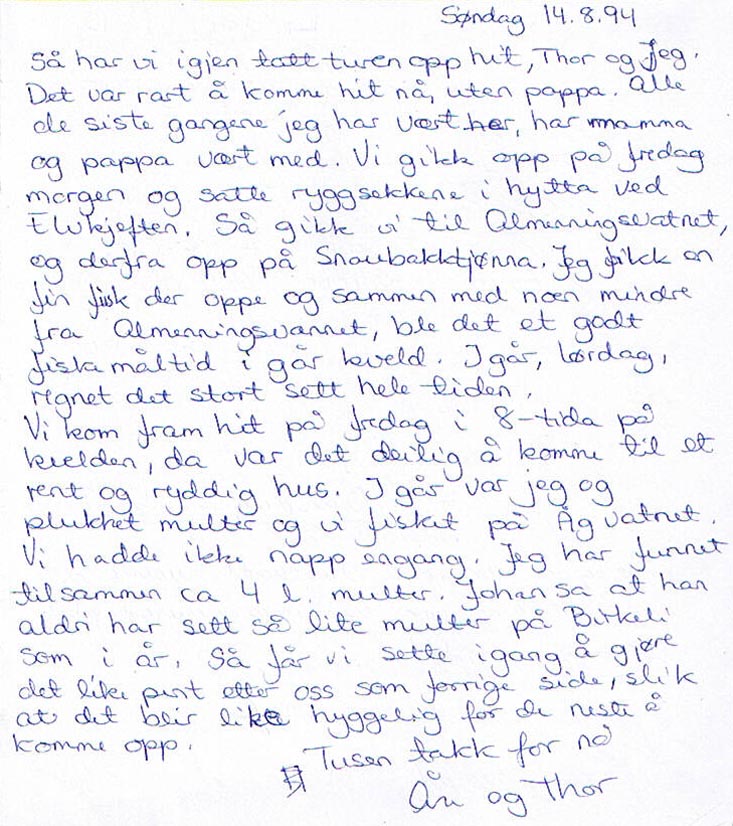 Søndag 14.8.94
Så har vi igjen tatt turen opp hit, Thor og jeg.
Det var rart å komme hit nå, uten pappa. Alle
de siste gangene jeg har vært her, har mamma
og pappa vært med. Vi gikk opp på fredag
morgen og satte ryggsekkene i hytta ved
Elvkjeften. Så gikk vi til Almenningsvatnet,
og derfra opp på Snaubakktjønna. Jeg fikk en
fin fisk der oppe og sammen med noen mindre
fra Almenningsvannet, ble det et godt
fiskemåltid i går kveld. I går, lørdag,
regnet det stort sett hele tiden.
Vi kom fram hit på fredag i 8-tida på
kvelden, da var det deilig å komme til et
rent og ryddig hus. I går var jeg og
plukket multer og vi fisket på Ågvatnet.
Vi hadde ikke napp engang. Jeg har funnet
tilsammen ca 4 l. multer. Johan sa at han
aldri har sett så lite multer på Birkeli
som i år. Så får vi sette igang å gjøre
det like pent etter oss som forrige side, slik
at det blir like hyggelig for de neste å
komme opp.
Tusen takk for nå
og Thor